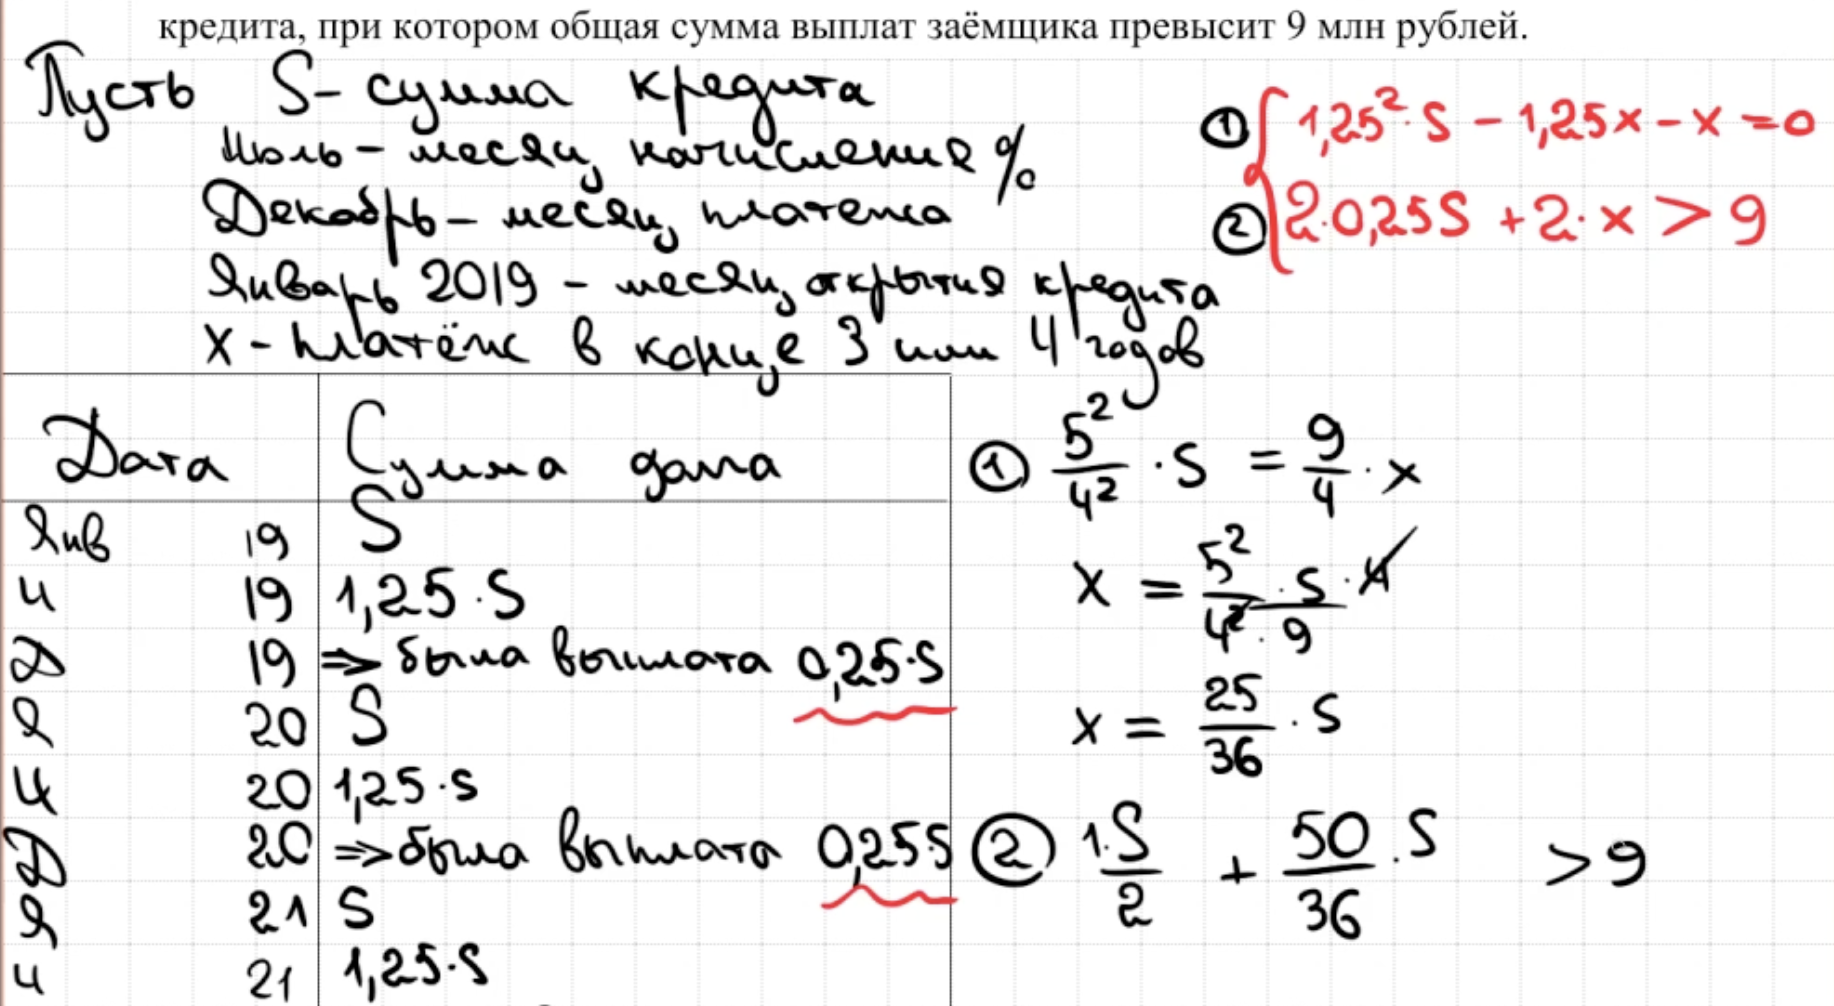 кредита, при котором общая сумма выплат заёмщика превысит 9 млн рублей.
Пусть S - сумма кредита
Июль - месяц начисления %
Декабрь - месяц платежа
Январь 2019 - месяц открытия кредита
X - платёж в конце 3 или 4 годов
① 1,25²·S - 1,25x - x = 0
② 2·0,25S + 2·x > 9
Дата Сумма долга
Янв 19 S
И 19 1,25·S
Д 19 => была выплата 0,25·S
Я 20 S
И 20 1,25·S
Д 20 => была выплата 0,25S
Я 21 S
И 21 1,25·S
① 5²/4² · S = 9/4 · x
x = 5²·S·4/4²·9
x = 25/36 · S
② 1·S/2 + 50/36 · S > 9